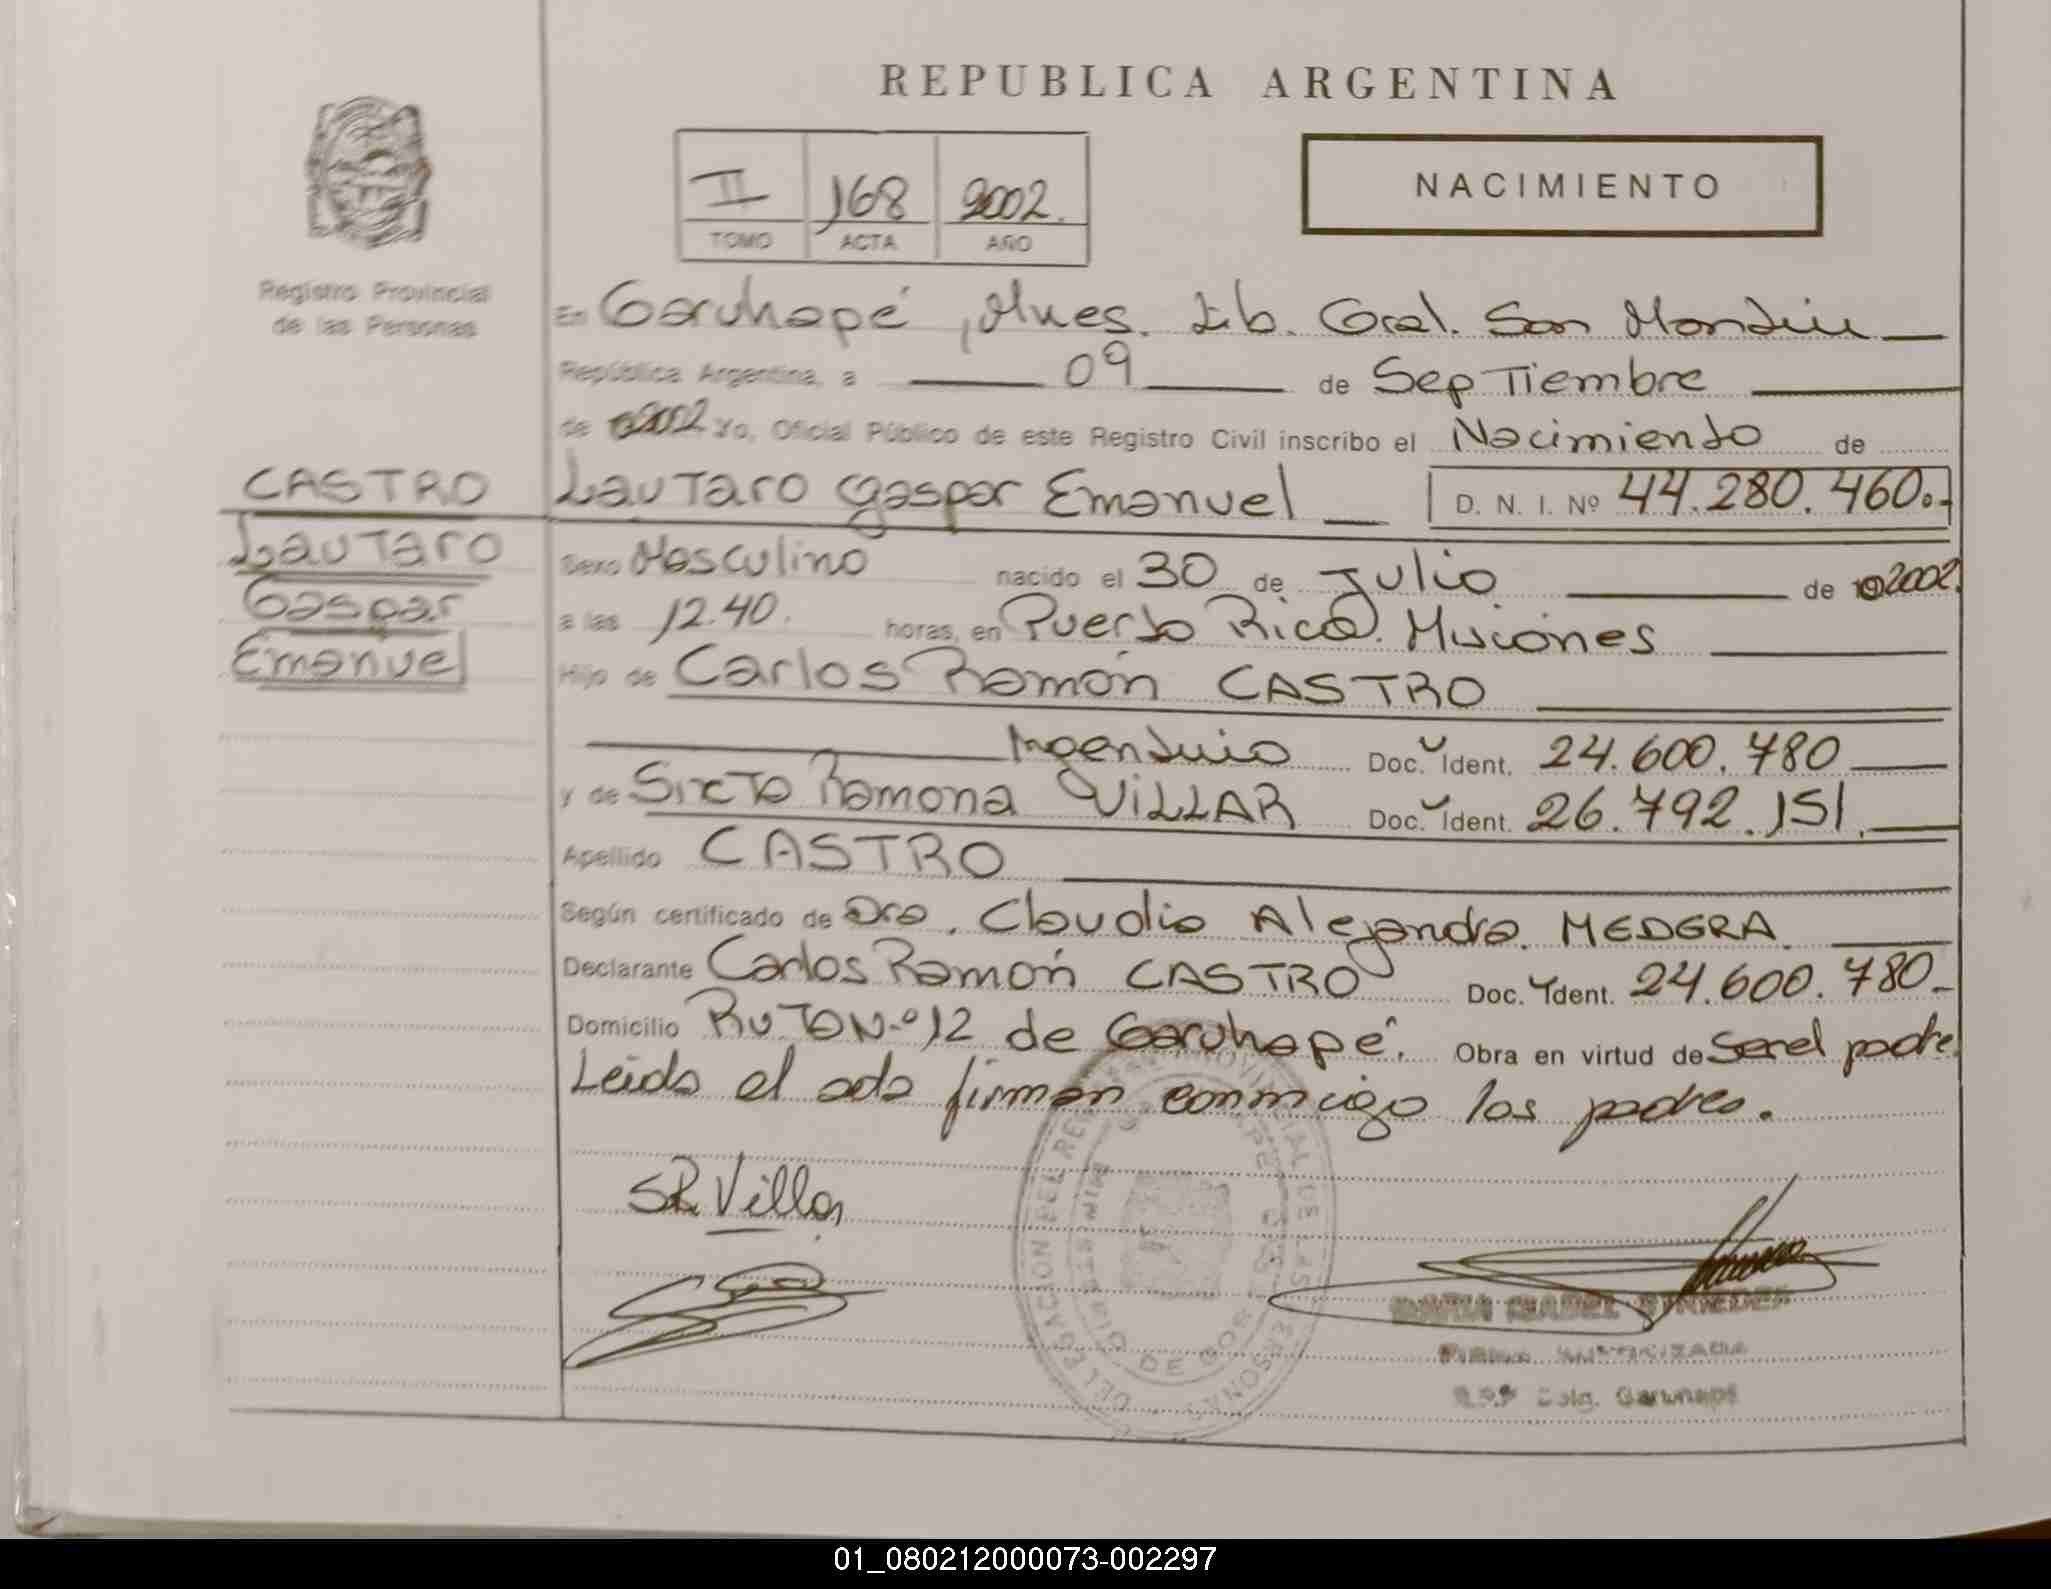 REPUBLICA ARGENTINA
II 168 2002.
TOMO ACTA AÑO
NACIMIENTO
Registro Provincial
de las Personas
En Garuhapé, Mnes. Lib. Gral. San Martín
República Argentina, a 09 de Septiembre
de 2002 Yo, Oficial Público de este Registro Civil inscribo el Nacimiento de
CASTRO
Lautaro
Gaspar
Emanuel
Lautaro Gaspar Emanuel D. N. I. Nº 44.280.460.-
Sexo Masculino nacido el 30 de Julio de 2002.
a las 12.40. horas, en Puerto Rico. Misiones
Hijo de Carlos Ramón CASTRO
Argentino Doc. Ident. 24.600.780
y de Sixta Ramona VILLAR Doc. Ident. 26.792.151.
Apellido CASTRO
Según certificado de Dra. Claudia Alejandra. MEDERA.
Declarante Carlos Ramón CASTRO Doc. Ident. 24.600.780-
Domicilio Ruta N.º 12 de Garuhapé. Obra en virtud de Ser el padre
Leída el acta firman conmigo los padres.
SR Villar
DELEGACION DEL REGISTRO PROVINCIAL DE LAS PERSONAS
GARUHAPE
MINISTERIO DE GOBIERNO
MARIA ISABEL
FIRMA AUTORIZADA
Dleg. Garuhapé
01_080212000073-002297